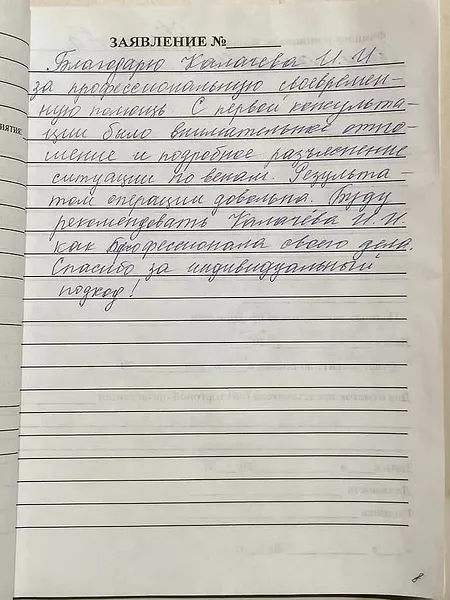 ЗАЯВЛЕНИЕ №
Благодарю Калачева И. И.
за профессиональную своевремен-
ную помощь. С первой консульта-
ции было внимательное отно-
шение и подробное разъяснение
ситуации по венам. Результа-
том операции довольна. Буду
рекомендовать Калачева И. И.
как профессионала своего дела.
Спасибо за индивидуальный
подход!
ИЯТИЕ
8